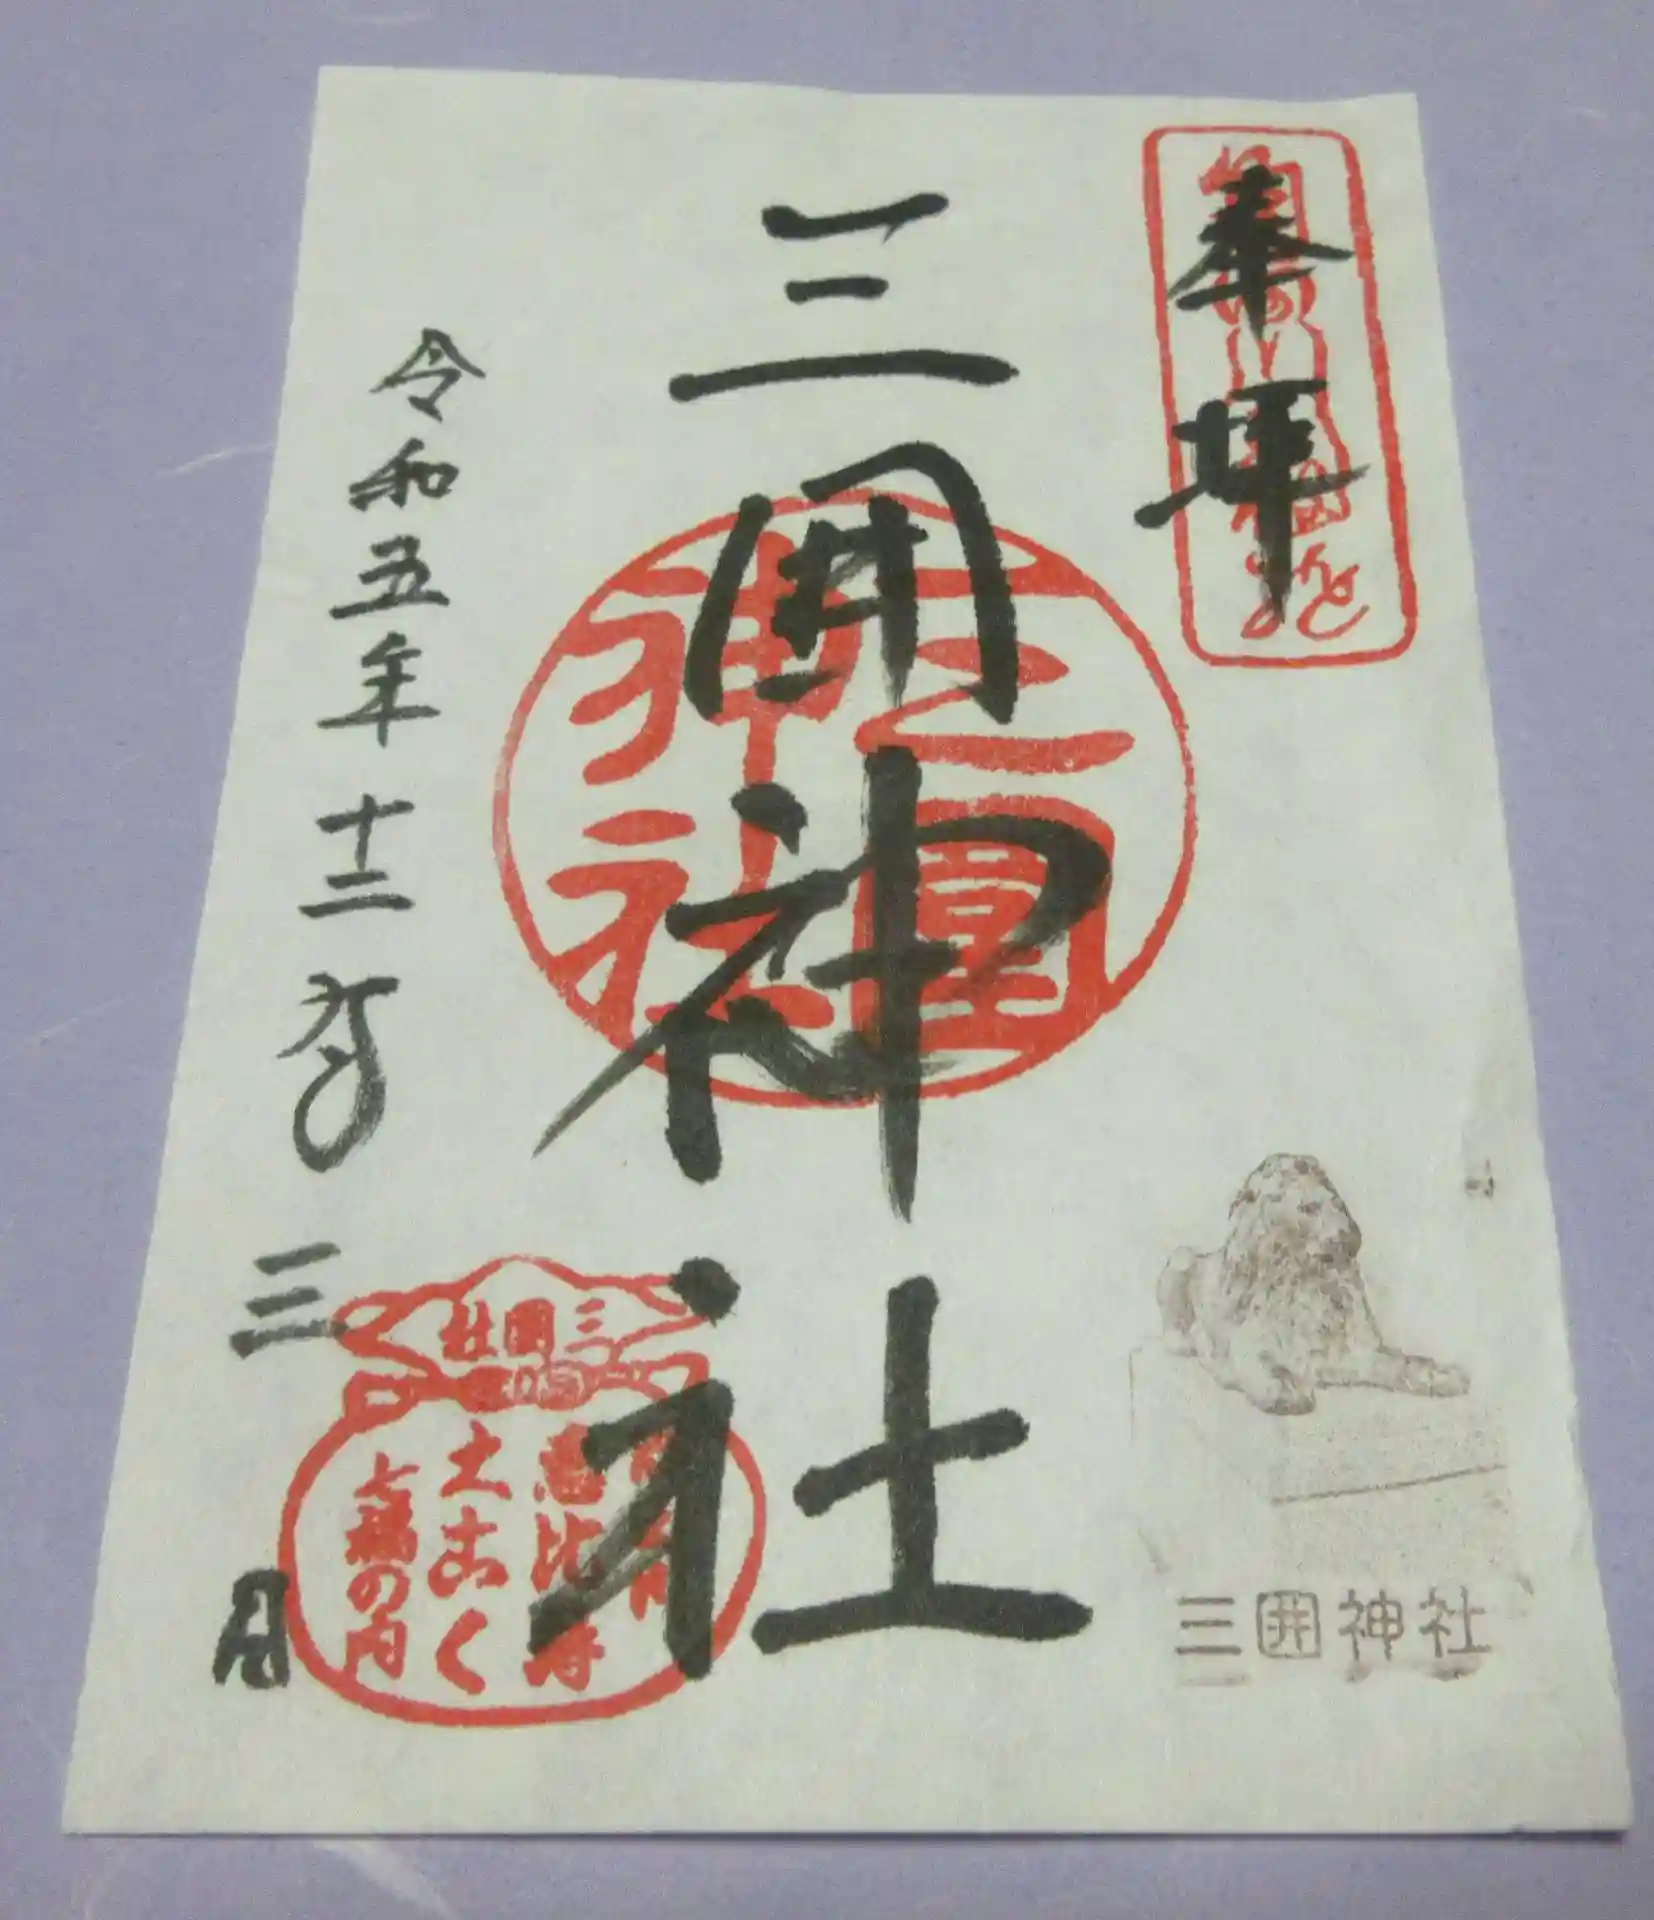 奉拝
三囲神社
三囲神社
令和五年十二月三日
三囲社
恵比寿
大こく
上福の内
三囲神社